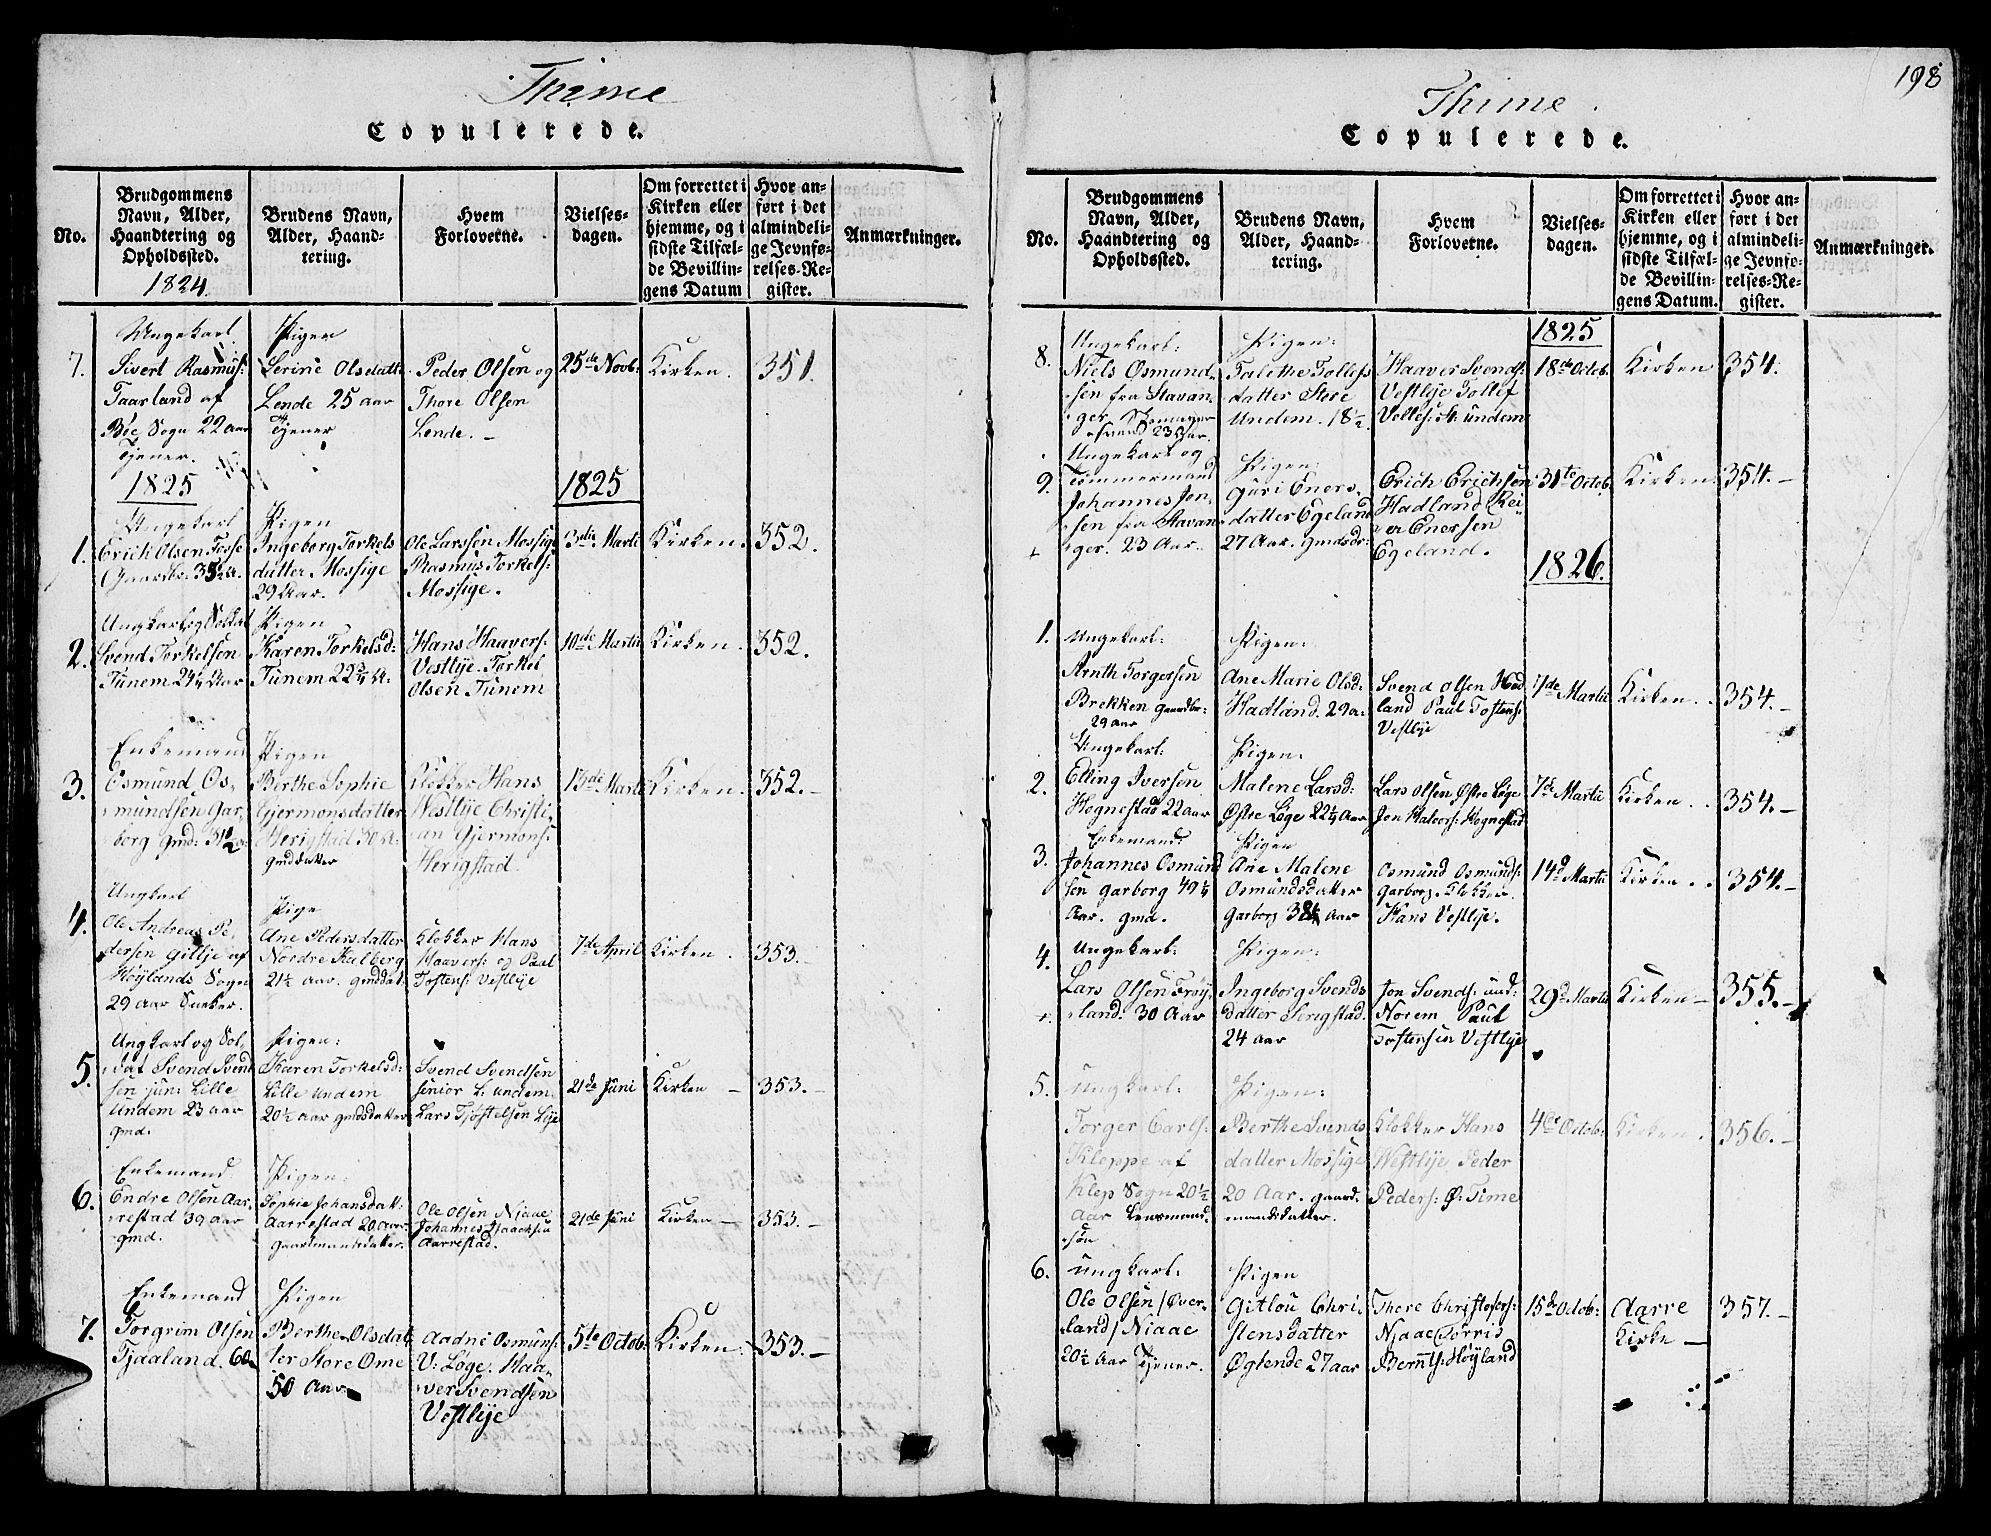 Thime
Copulerede.
No.
Brudgommens
Navn, Alder,
Haandtering og
Opholdssted.
1824.
Brudens Navn,
Alder, Haand-
tering.
Hvem
Forloverne.
Vielses-
dagen.
Om forrettet i
Kirken eller
hjemme, og i
sidste Tilfæl-
de Bevillin-
gens Datum
Hvor an-
ført i det
almindeli-
ge Jevnfø-
relses-Re-
gister.
Anmærkninger.
7.
Ungekarl
Sivert Rasmus:
Taarland af
Boe Sogn 22 Aar
Tjener.
Pigen
Serine Olsdatt:
Lende 25 aar
Tjener
Peder Olsen og
Thore Olsen
Lende. -
25de Novb:
Kirken.
351.
1825
1825
1.
Ungekarl
Erick Olsen Fosse
Gaardbr:
Pigen
Ingeborg Torkels
datter Mossige
29 Aar.
Ole Larssen Mossige
Rasmus Torkels:
Mossige.
3die Marti
Kirken.
352.
2.
Ungkarl og Soldat
Svend Torkelsen
Tunem 24¼ Aar
Pigen
Karen Torkelsd:
Tunem
Hans Haavers:
Vestlye. Torkel
Olsen Tunem
10de Martii
Kirken.
352.
3.
Enkemand
Osmund Os-
mundsen Gar-
borg gmd:
Pigen
Berthe Sophie
Gjermonsdatter
Herigstad 30 A:
gmddatter
Klokker Hans
Westlye Christi-
an Gjermons:
Herigstad.
Kirken.
352. -
4.
Ungkarl
Ole Andreas Pe-
dersen Gillje af
Høylands Sogn
29 aar
Pige
Ane Pedersdatter
Nordre Kalberg
21½ aar. gmddat:
Klokker Hans
Haavers: og Paul
Tostens: Vestlye
7de April
Kirken.
353. -
5.
Ungkarl og Sol-
dat Svend Svend
sen jun: Lille
Undem 23 aar
gmd.
Pigen:
Karen Torkelsd:
Lille Undem
20½ aar gmdsdatter
Svend Svendsen
senior L. undem.
Lars Tjøstelsen Lye
21de Juni
Kirken -
353. -
6.
Enkemand
Endre Olsen Aar-
restad 39 aar
gmd.
Pigen:
Sophie Johansdatt:
Aarrestad 20 aar
gaardmandsdatter.
Ole Olsen Njaae
Johannes Isaachsen
Aarrestad.
21de Juni
Kirken -
353. -
7.
Enkemand
Torgrim Olsen
Tjaaland. 60
Pigen
Berthe Olsdat-
ter Store Ome
50 Aar
Aadne Osmuns:
V: Løge. Haa-
ver Svendsen
Vestlye
5te Octob:
Kirken.
353. -
198
Thime.
Copulerede.
No.
Brudgommens
Navn, Alder,
Haandtering og
Opholdssted.
Brudens Navn,
Alder, Haand-
tering.
Hvem
Forloverne.
Vielses-
dagen.
Om forrettet i
Kirken eller
hjemme, og i
sidste Tilfæl-
de Bevillin-
gens Datum.
Hvor an-
ført i det
almindeli-
ge Jevnfø-
relses-Re-
gister.
Anmærkninger.
1825
8.
Ungekarl:
Niels Osmund-
sen fra Stavan-
ger,
Pigen:
Talethe Tollefs
datter Store
Undem. 18½
Haaver Svends:
Vestlye Tollef
Vellefs: St: undem
18de Octob.
Kirken
354.
9.
Ungekarl og
Tømmermand
Johannes Jon-
sen fra Stavan-
ger. 23 Aar.
Pigen:
Guri Eners-
datter Egeland
27 Aar. gmdsdr:
Erich Erichsen
Hadland Rei-
er Enersen
Egeland.
31te Octob.
Kirken.
354. -
1826.
1.
Ungekarl:
Arnth Torgersen
Brekken gaardbr:
29 aar
Pigen:
Ane Marie Olsd:
Hadland. 29 a:
Svend Olsen Had
land Paul Tostens:
Vestlye
7de Martii
Kirken.
354. -
2.
Ungekarl:
Elling Iversen
Hognestad 22 aar
Pigen:
Malene Larsd:
Østre Løge 22¼ Aar
Lars Olsen Østre Løge
Jon Halvors: Hognestad
7de Martii
Kirken.
354. -
3.
Enkemand:
Johannes Osmund
sen Garborg 49½
Aar. gmd.
Pigen
Ane Malene
Osmundsdatter
Garborg
Osmund Osmunds:
Garborg. Klokker
Hans Vestlye.
14d Martii
Kirken.
354. -
4.
Ungekarl:
Lars Olsen Frøy-
land. 30 Aar
Pigen:
Ingeborg Svends
datter Serigstad.
24 aar
Jon Svends: und:
Norem Paul
Tostensen Vestlye
29d Martii
Kirken -
355. -
5.
Ungkarl:
Torger Carls:
Kleppe af
Klep Sogn 20½
Aar Lensmand-
søn
Pigen:
Berthe Svends
datter Mossige
20 Aar. gaard-
mandsdatter.
Klokker Hans
Westlye Peder
Peders: Ø: Time
4de Octob:
Kirken.
356. -
6.
Ungkarl:
Ole Olsen /Øver-
land/ Njaae
20½ Aar Tjener.
Pigen
Gitlou Chri-
stensdatter
Øglende 27 aar
Thore Christofers:
Njaae Torris
Bernts: Høyland
15de Octob:
Aarre
Kirke -
357. -